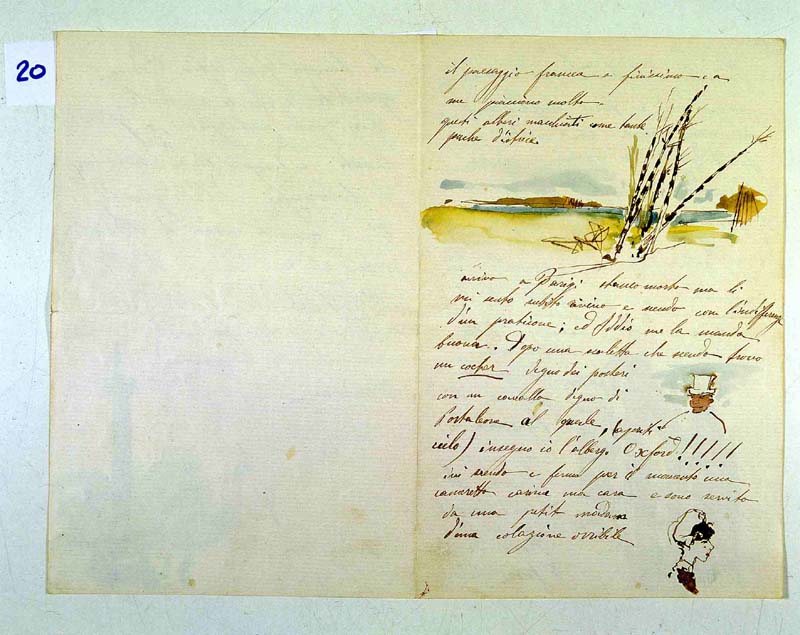 20
il paesaggio francese e finissimo e a
me piacciono molto
questi alberi macchiati come tante
penne d'istrice
arrivo a Parigi stanco morto ma lì
mi sento subito e scendo con l'indifferenza
d'un praticone; ed Iddio me la manda
buona. Dopo una scaletta che scendo trovo
un cocher degno dei posteri
con un cavallo degno di
al quale,
insegno io l'albergo Oxford!!!!!!
ivi scendo e fermo per il momento una
cameretta carina ma cara e sono servito
da una petit madame
d'una colazione orribile